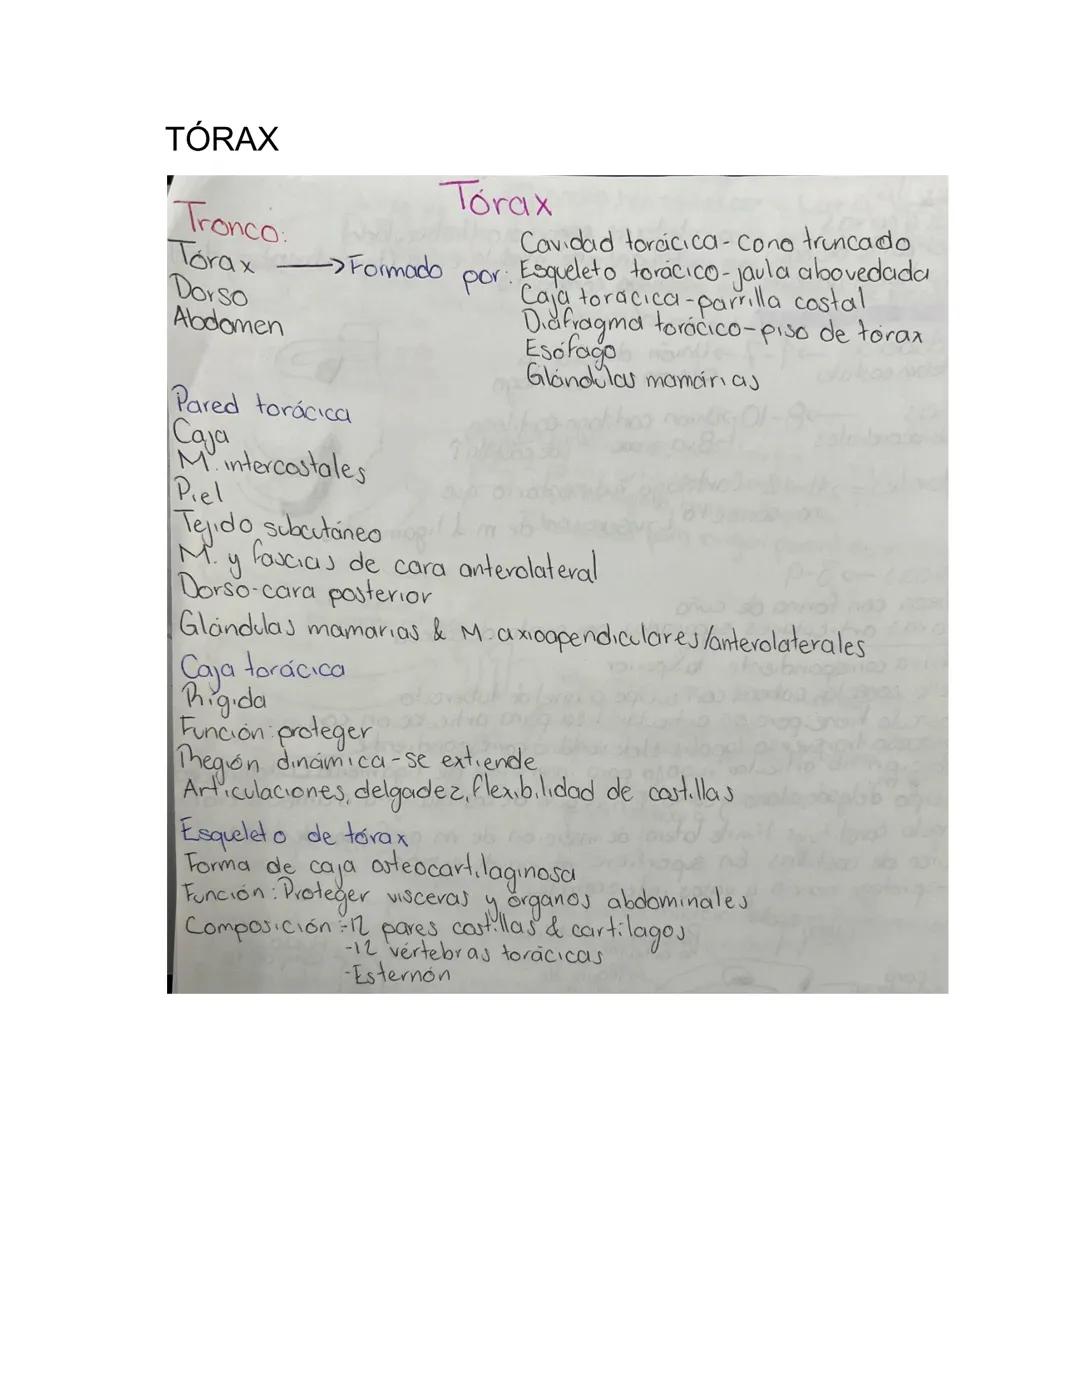 TÓRAX
Tórax
Tronco:
Tórax → Formado por:
Dorso
Abdomen
Cavidad torácica - cono truncado
Esqueleto torácico - jaula abovedada
Caja torácica - parrilla costal
Diafragma torácico - piso de tórax
Esófago
Glándulas mamárias
Pared torácica
Caja
M. intercostales
Piel
Tejido subcutáneo
M. y fascias de cara anterolateral
Dorso-cara posterior
Glándulas mamarias & M. axioapendiculares/anterolaterales
Caja torácica
Rígida
Función: proteger
Región dinámica - se extiende
Articulaciones, delgadez, flexibilidad de costillas
Esqueleto de tórax
Forma de caja osteocartilaginosa
Función: Proteger vísceras y órganos abdominales
Composición: -12 pares costillas & cartílagos
-12 vértebras torácicas
-Esternón